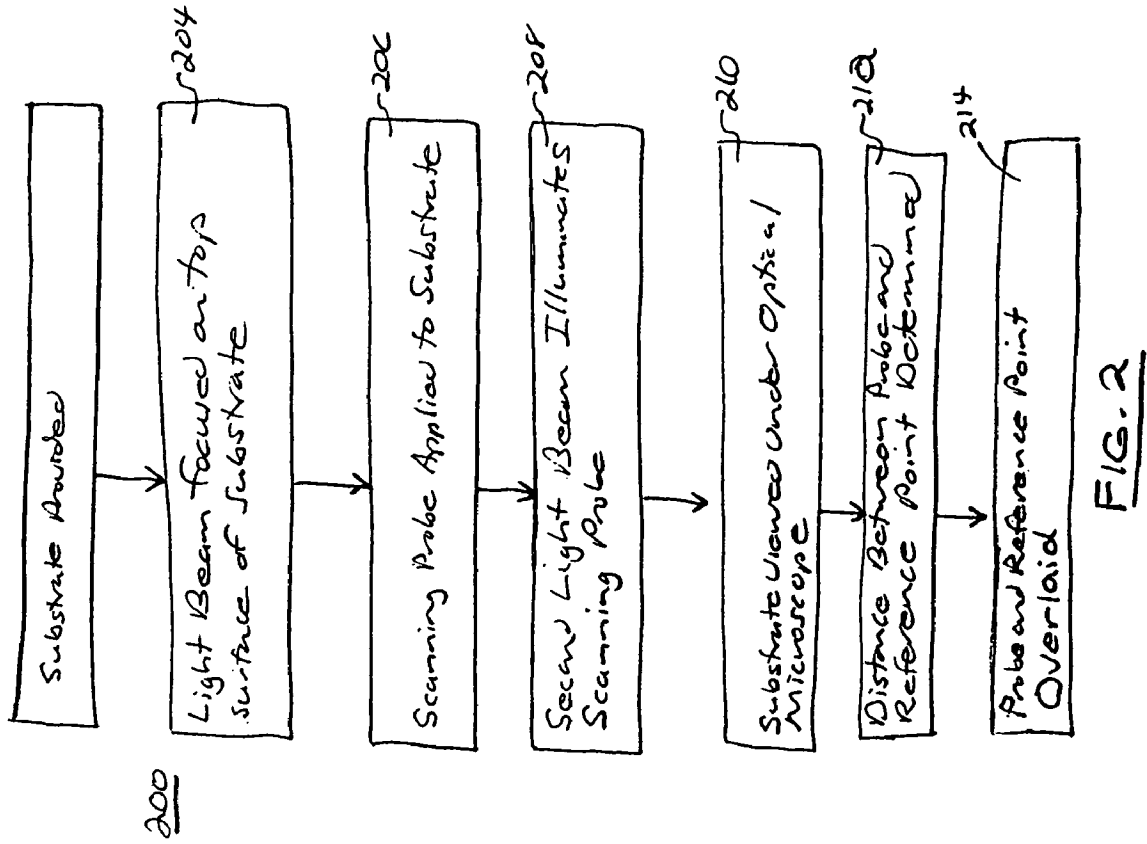 200
Substrate Provided
204
Light Beam focused on top
surface of substrate
206
Scanning Probe Applied to Substrate
208
Second Light Beam Illuminates
Scanning Probe
210
Substrate Viewed Under Optical
Microscope
212
Distance Between Probe and
Reference Point Determined
214
Probe and Reference Point
Overlaid
FIG. 2